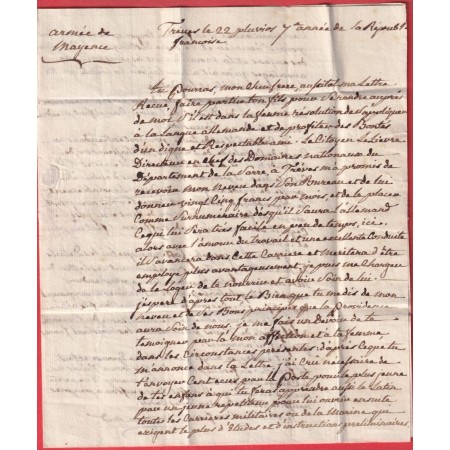 armée de
Mayence
Trèves le 22 pluviose 7e année de la Républ.
francoise
tu Pourras, mon cher frere, aussitot ma Lettre
Recue, faire partir ton fils pour se rendre auprès
de moi. S'il est dans la ferme resolution de s'apliquer
à la Langue allemande et de profiter des Bontés
d'un digne et Respectable ami. Le Citoyen Lelievre
Directeur en chef des Domaines nationaux du
Département de la Sarre, à Trèves m'a promis de
recevoir mon Neveu dans son Bureau et de lui
donner vingt cinq francs par mois, et de le placer
Comme Surnumeraire dès qu'il saura l'allemand
Ce qui lui sera très facile en peu de temps, ici,
alors avec l'amour du travail et une excellente Conduite
il s'avancera dans Cette Carriere et méritera d'être
employé plus avantageusement; je puis me charger
de le Loger de le nourrir et avoir Soin de lui.
j'espere d'après tout le Bien que tu me dis de mon
neveu et de ses Bons principes que la Providence
aura Soin de nous. je me fais un Devoir de te
temoigner par la mon affection et à ta femme
dans les Circonstances présentes: d'après Ce que tu
m'annonce dans ta Lettre, j'ai Cru nécessaire de
t'envoyer Cent ecus par la Poste pour le plus jeune
de tes enfans à qui tu feras apprendre aussi le Latin
par un jeune repetiteur pour lui ouvrir ensuite
toutes les Carrieres militaires ou de la Marine qui
exigent le plus d'Etudes et d'instructions preliminaires.